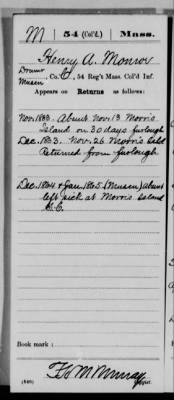 M | 54 (Col'd.) | Mass.
Henry A. Monroe
Drums
Muscn, Co. C, 54 Reg't Mass. Col'd Inf.
Appears on Returns as follows:
Nov. 1863. Absent Nov. 13 Morris
Island on 30 days furlough
Dec. 1863. Nov. 26 Morris Isld
Returned from furlough.
Dec. 1864 & Jan. 1865 (Muscn) absent
left sick at Morris Island
S.C.
Book mark:
Murray
(546)